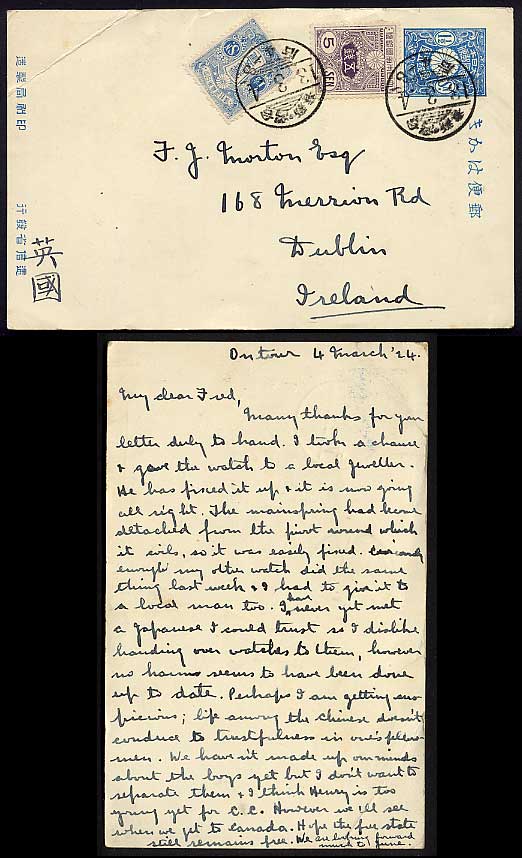 5
SEN
1½
きかは便郵
造製局刷印
行發省信遞
英國
F. J. Morton Esq
168 Merrion Rd
Dublin
Ireland
On tour 4 March '24.
My dear Fred,
Many thanks for your
letter duly to hand. I took a chance
& gave the watch to a local jeweller.
He has fixed it up & it is now going
all right. The mainspring had become
detached from the pivot round which
it coils, so it was easily fixed. Curiously
enough my other watch did the same
thing last week & I had to give it to
a local man too. I have never yet met
a Japanese I could trust so I dislike
handing over watches to them, however
no harm seems to have been done
up to date. Perhaps I am getting sus-
picious; life among the Chinese doesn't
conduce to trustfulness in one's fellow-
men. We haven't made up our minds
about the boys yet but I don't want to
separate them & I think Henry is too
young yet for C.C. However we'll see
when we get to Canada. Hope the free state
still remains free. We are looking forward
much to June.